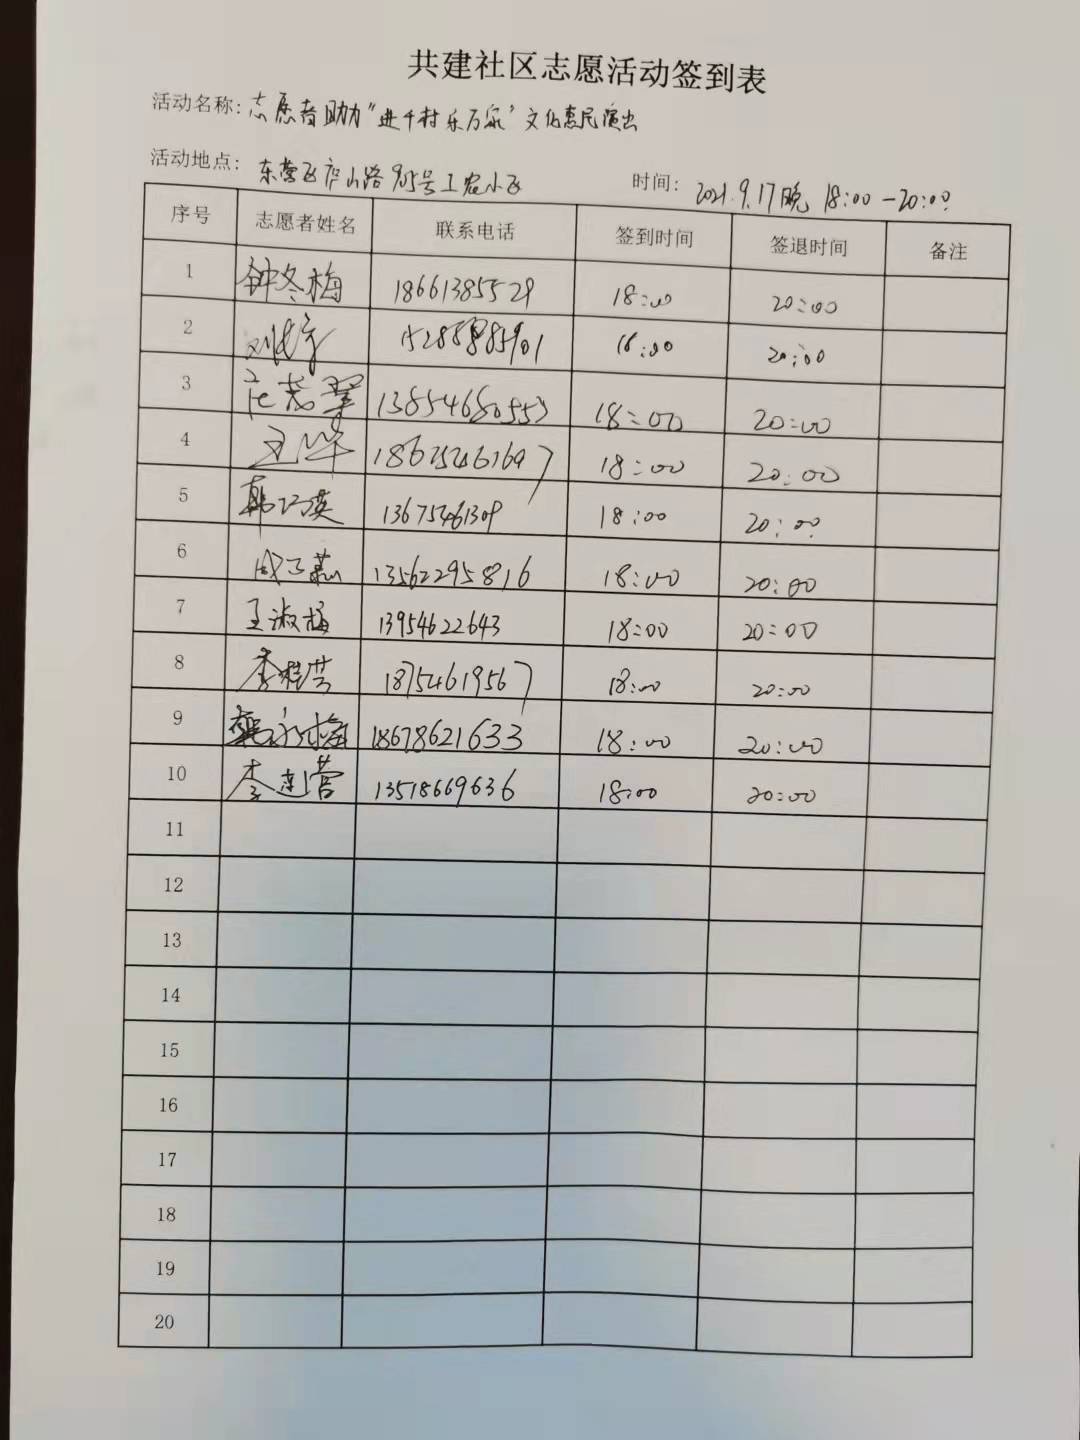 共建社区志愿活动签到表
活动名称: 志愿者助力"进千村乐万家"文化惠民演出
活动地点: 东营区庐山路905号工农小区 时间: 2021.9.17晚 18:00-20:00
序号 志愿者姓名 联系电话 签到时间 签退时间 备注
1 钟冬梅 18661385529 18:00 20:00
2 18:00 20:00
3 13854680553 18:00 20:00
4 18:00 20:00
5 韩巧英 13675461309 18:00 20:00
6 13562295816 18:00 20:00
7 王淑梅 13954622643 18:00 20:00
8 18754619567 18:00 20:00
9 韩永梅 18678621633 18:00 20:00
10 李建营 13518669636 18:00 20:00
11
12
13
14
15
16
17
18
19
20